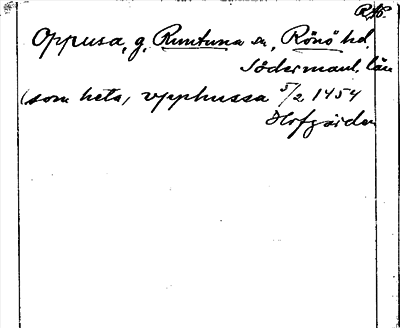 RAP.
Oppusa, g, Runtuna sn, Rönö hd,
Södermanl. län
(som heta, vpphussa 5/2 1454
Hofgården